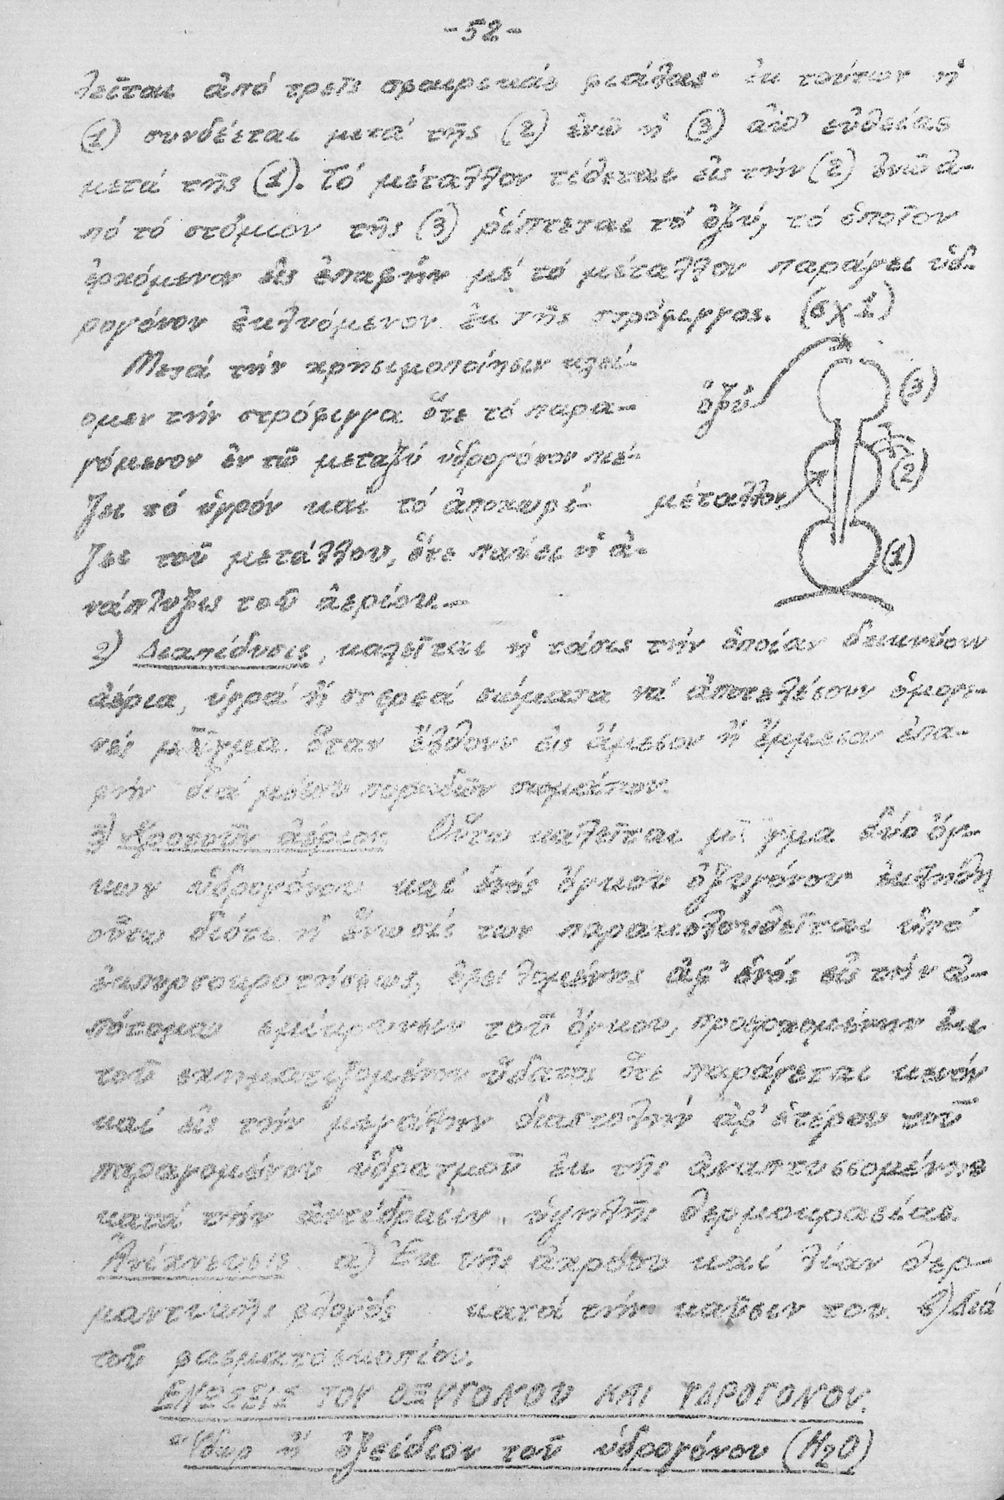 -52-
λεῖται ἀπό τρεῖς σφαιρικάς φιάλας· ἐκ τούτων ἡ
(1) συνδέεται μετά τῆς (2) ἐνῶ ἡ (3) ἀπ' εὐθείας
μετά τῆς (1). Τό μέταλλον τίθεται εἰς τήν (2) ἐνῶ ἀ-
πό τό στόμιον τῆς (3) ρίπτεται τό ὀξύ, τό ὁποῖον
ἐρχόμενον εἰς ἐπαφήν μέ τό μέταλλον παράγει ὑδ-
ρογόνον ἐκλυόμενον ἐκ τῆς στρόφιγγος. (σχ1)
Μετά τήν χρησιμοποίησιν κλεί-
ομεν τήν στρόφιγγα ὅτε τό παρα-
γόμενον ἐν τῶ μεταξύ ὑδρογόνον πιέ-
ζει τό ὑγρόν καί τό ἀποχωρί-
ζει τοῦ μετάλλου, ὅτε παύει ἡ ἀ-
νάπτυξις τοῦ ἀερίου.-
ὀξύ
μέταλλον
(3)
(2)
(1)
2) Διαπίδυσις, καλεῖται ἡ τάσις τήν ὁποίαν δεικνύουν
ἀέρια, ὑγρά ἤ στερεά σώματα νά ἀποτελέσουν ὁμογε-
νές μῖγμα ὅταν ἔλθουν εἰς ἄμεσον ἤ ἔμμεσον ἐπα-
φήν διά μέσου πορωδῶν σωμάτων.
3) Κροτοῦν ἀέριον Οὕτω καλεῖται μῖγμα δύο ὄγ-
κων ὑδρογόνου καί ἑνός ὄγκου ὀξυγόνου· ἐκλήθη
οὕτω διότι ἡ ἕνωσίς των παρακολουθεῖται ὑπό
ἐκπυρσοκροτήσεως, ὀφειλομένης ἀφ' ἑνός εἰς τήν ἀ-
πότομον σμίκρυνσιν τοῦ ὄγκου, προερχομένην ἐκ
τοῦ σχηματιζομένου ὕδατος ὅτε παράγεται κενόν
καί εἰς τήν μεγάλην διαστολήν ἀφ' ἑτέρου τοῦ
παραγομένου ὑδρατμοῦ ἐκ τῆς ἀναπτυσσομένης
κατά τήν ἀντίδρασιν ὑψηλῆς θερμοκρασίας.
Ἀνίχνευσις α) Ἐκ τῆς ἀχρόου καί λίαν θερ-
μαντικῆς φλογός κατά τήν καῦσιν του. β) Διά
τοῦ φασματοσκοπίου.
ΕΝΩΣΕΙΣ ΤΟΥ ΟΞΥΓΟΝΟΥ ΚΑΙ ΥΔΡΟΓΟΝΟΥ.
Ὕδωρ ἤ ὀξείδιον τοῦ ὑδρογόνου (H2O)